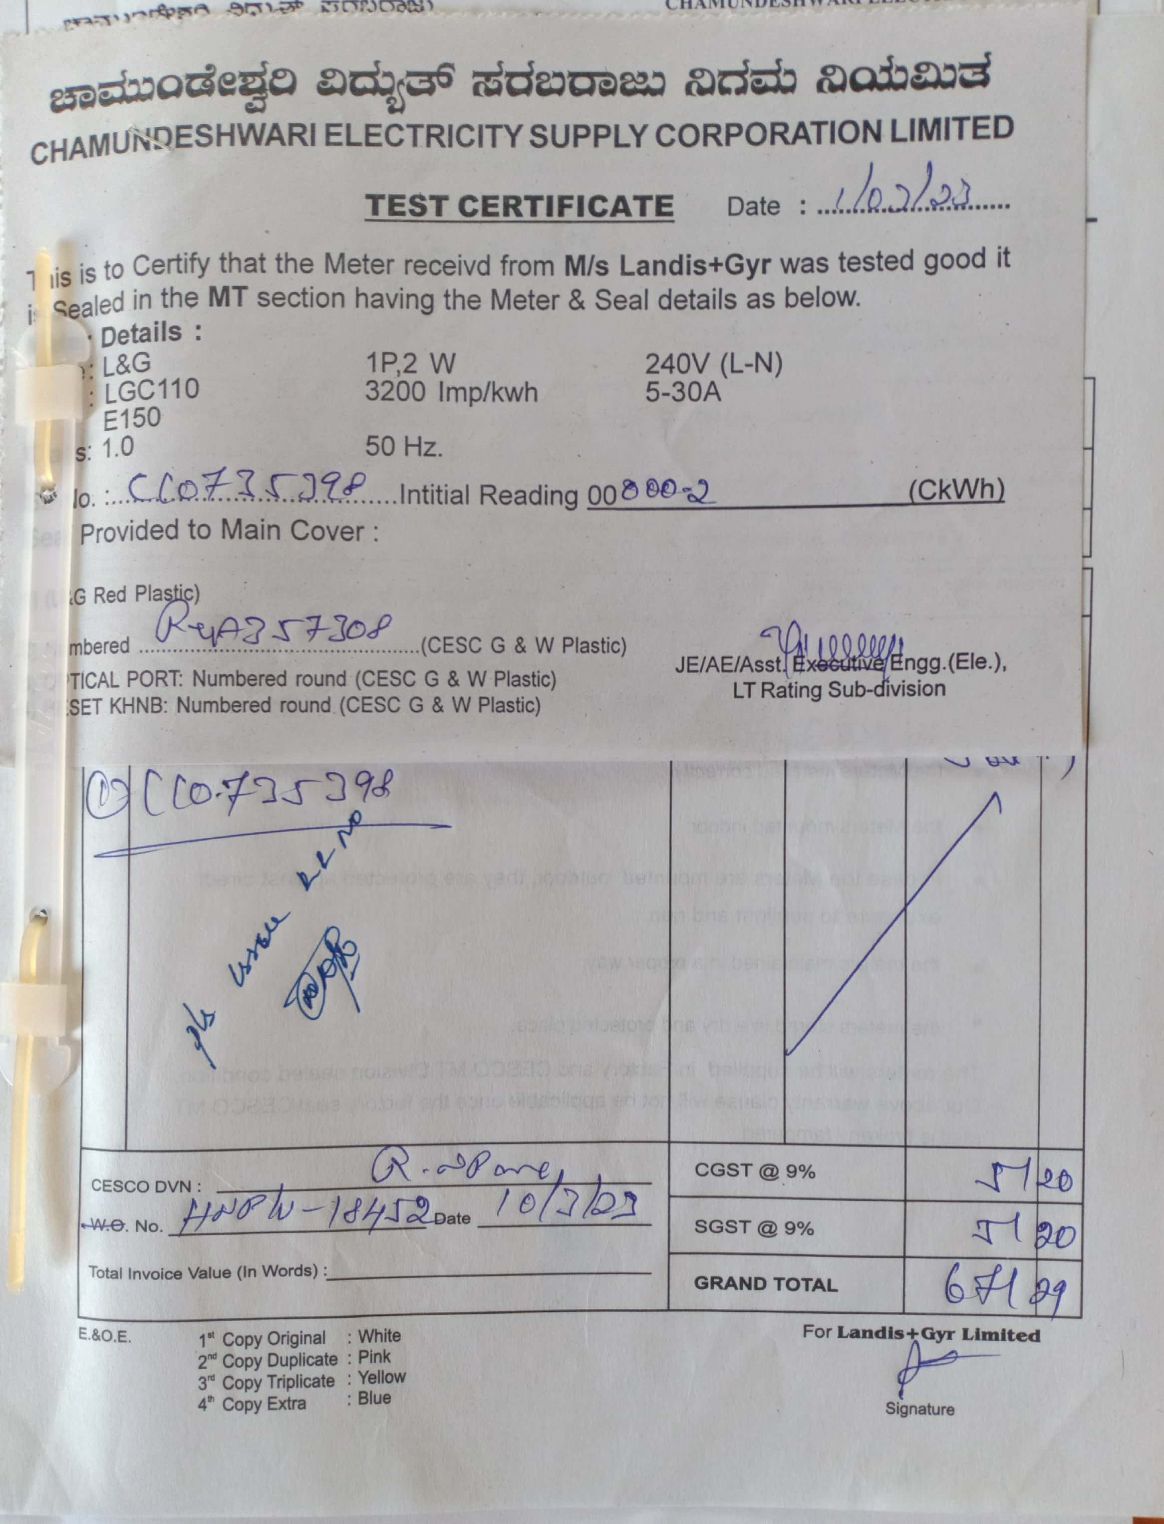 ಚಾಮುಂಡೇಶ್ವರಿ ವಿದ್ಯುತ್ ಸರಬರಾಜು ನಿಗಮ ನಿಯಮಿತ
CHAMUNDESHWARI ELECTRICITY SUPPLY CORPORATION LIMITED
TEST CERTIFICATE Date :
is to Certify that the Meter receivd from M/s Landis+Gyr was tested good it
Sealed in the MT section having the Meter & Seal details as below.
Details :
: L&G 1P,2 W 240V (L-N)
: LGC110 3200 Imp/kwh 5-30A
E150
s: 1.0 50 Hz.
lo. : CC0735398 Intitial Reading 00 (CkWh)
Provided to Main Cover :
G Red Plastic)
mbered 357308 (CESC G & W Plastic)
TICAL PORT: Numbered round (CESC G & W Plastic)
SET KHNB: Numbered round (CESC G & W Plastic)
JE/AE/Asst. Executive Engg.(Ele.),
LT Rating Sub-division
CC0735398
RR NO
CESCO DVN :
W.O. No. 18452 Date 10/3/23
Total Invoice Value (In Words) :
CGST @ 9% 51 20
SGST @ 9% 51 20
GRAND TOTAL 671 29
E.&O.E. 1st Copy Original : White
2nd Copy Duplicate : Pink
3rd Copy Triplicate : Yellow
4th Copy Extra : Blue
For Landis+Gyr Limited
Signature